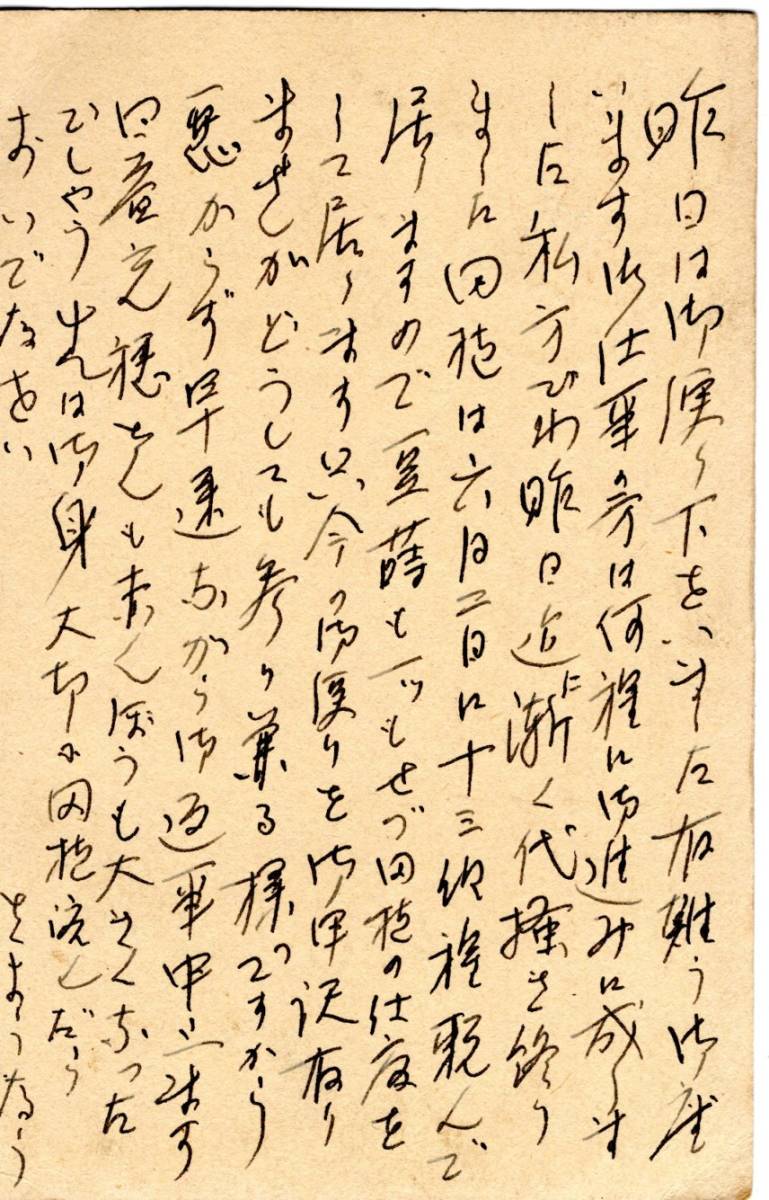 昨日は御便り下さいました有難う御座
います御仕事の方は何程に御進みに成りま
した私方でわ昨日迄に漸く代掻き終り
ました田植は六月二日に十三組程頼んで
居りますので豆蒔も一つもせづ田植の仕度を
して居ります只今の御便りを御申訳有り
ませんがどうしても参り兼る様ですから
悪からず早速ながら御返事申上ます
さんも赤んぼうも大きくなった
でしやう 先は御身大切に田植済んだら
おいでなさい さようなら